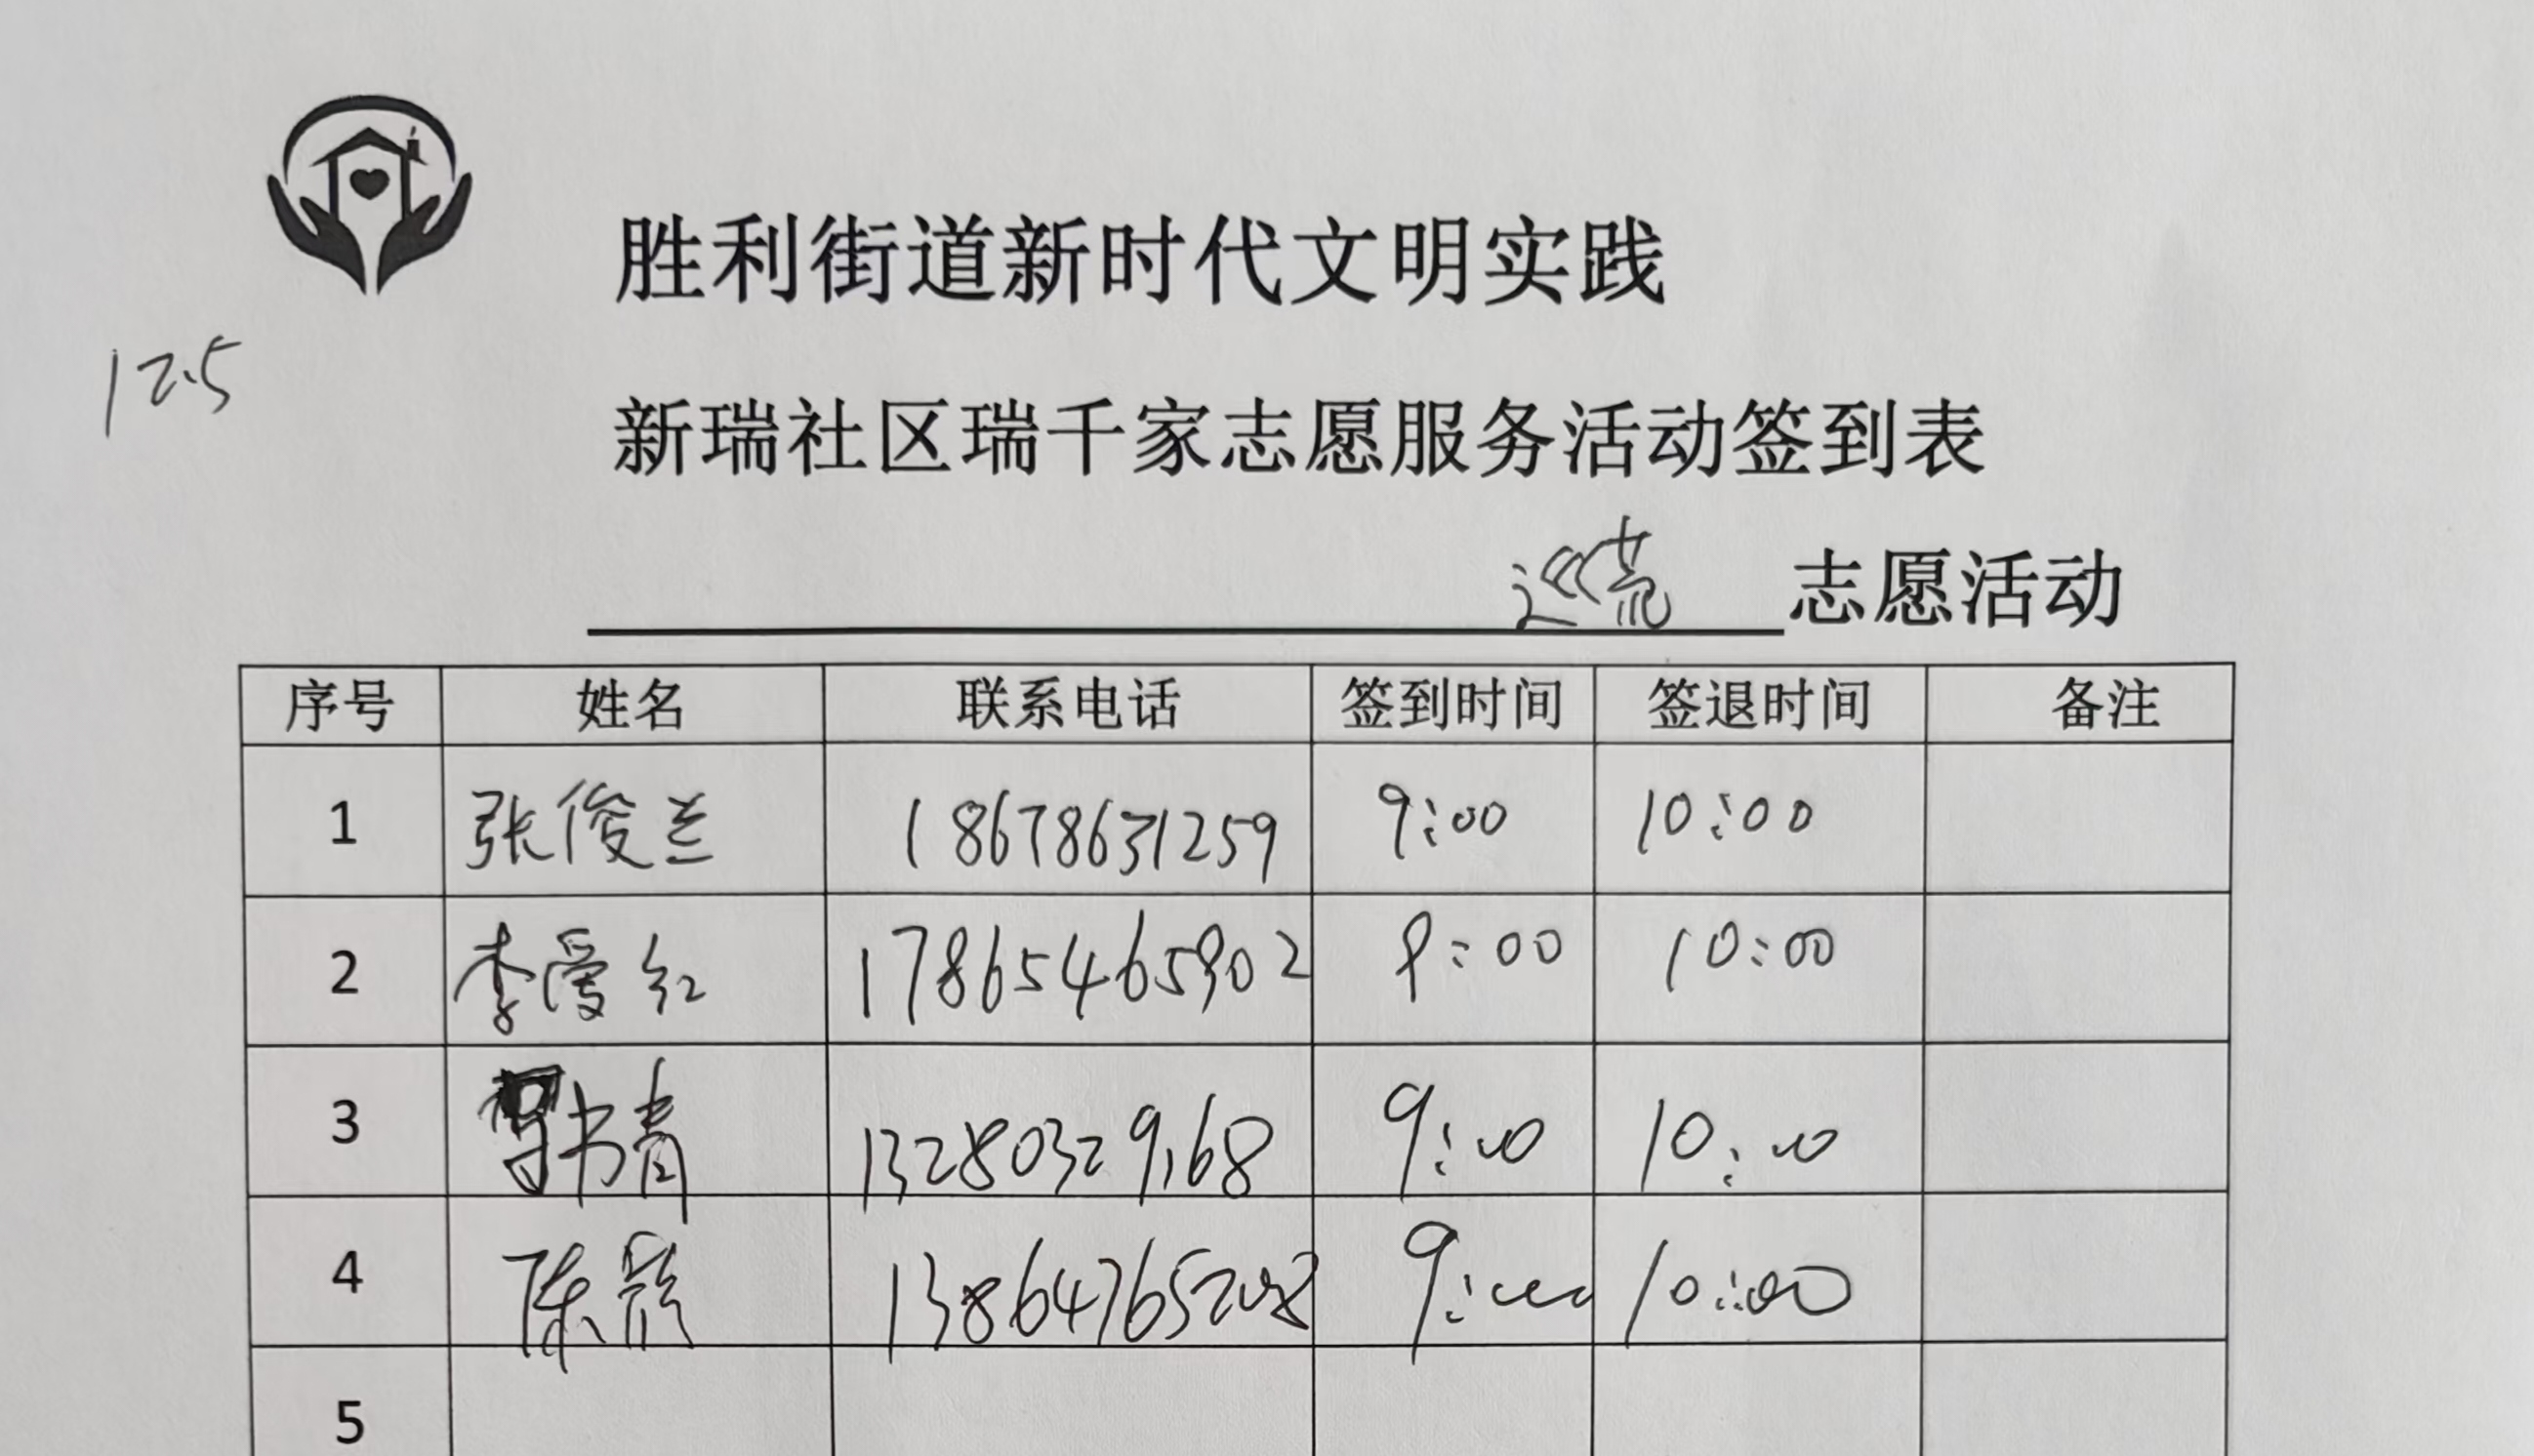 胜利街道新时代文明实践
12.5
新瑞社区瑞千家志愿服务活动签到表
巡荒 志愿活动
序号 姓名 联系电话 签到时间 签退时间 备注
1 张俊兰 18678631259 9:00 10:00
2 李爱红 17865465902 9:00 10:00
3 书青 13280329168 9:00 10:00
4 陈颜 9:00 10:00
5